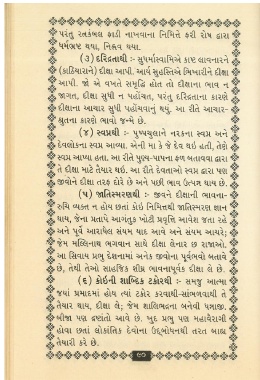 પરંતુ રત્નકંબલ ફાડી નાખવાના નિમિત્તે ફરી રોષ દ્વારા
ધર્મભ્રષ્ટ થયા, નિહ્નવ થયા.
(૩) દરિદ્રતાથી :- સુધર્માસ્વામિએ કાષ્ટ લાવનારને
(કઠિયારાને) દીક્ષા આપી. આર્ય સુહસ્તિએ ભિખારીને દીક્ષા
આપી. જો એ વખતે સમૃદ્ધિ હોત તો દીક્ષાના ભાવ ન
જાગત, દીક્ષા સુધી ન પહોંચત, પરંતુ દરિદ્રતાના કારણે
દીક્ષાના આચાર સુધી પહોંચવાનું થયું. આ રીતે આચાર-
શ્રુતના કારણે ભાવો જન્મે છે.
(૪) સ્વપ્રથી :- પુષ્પચુલાને નરકના સ્વપ્ર અને
દેવલોકના સ્વપ્ર આવ્યા. એની મા કે જે દેવ થઇ હતી, તેણે
સ્વપ્ર આપ્યા હતા. આ રીતે પુણ્ય-પાપના ફળ બતાવવા દ્વારા
તે દીક્ષા માટે તૈયાર થઇ. આ રીતે દેવતાઓ સ્વપ્ર દ્વારા પણ
જીવોને દીક્ષા તરફ દોરે છે અને પછી ભાવ ઉત્પન્ન થાય છે.
(૫) જાતિસ્મરણથી :- જીવને દીક્ષાની ભાવના-
રુચિ વ્યક્ત ન હોય છતાં કોઇ નિમિત્તથી જાતિસ્મરણ જ્ઞાન
થાય, જેના પ્રતાપે આગંતુક ખોટી પ્રવૃત્તિ આવેશ જતા રહે
અને પૂર્વે આરાધેલ સંયમ યાદ આવે અને સંયમ આચરે;
જેમ મલ્લિનાથ ભગવાન સાથે દીક્ષા લેનાર છ રાજાઓ.
આ સિવાય પ્રભુ દેશનામાં અનેક જીવોના પૂર્વભવો બતાવે
છે, તેથી તેઓ સાહજિક શીઘ્ર ભાવનાપૂર્વક દીક્ષા લે છે.
(૬) કોઇની શાબ્દિક ટકોરથી :- સમજુ આત્મા
જયાં પ્રમાદમાં હોય ત્યાં ટકોર કરવાથી-સાંભળવાથી તે
તૈયાર થાય, દીક્ષા લે; જેમ શાલિભદ્રના બનેવી ધન્નાજી.
બીજા પણ દ્રષ્ટાંતો આવે છે. ખુદ પ્રભુ પણ મહાવૈરાગી
હોવા છતાં લોકાંતિક દેવોના ઉદ્બોધનથી તરત બાહ્ય
તૈયારી કરે છે.